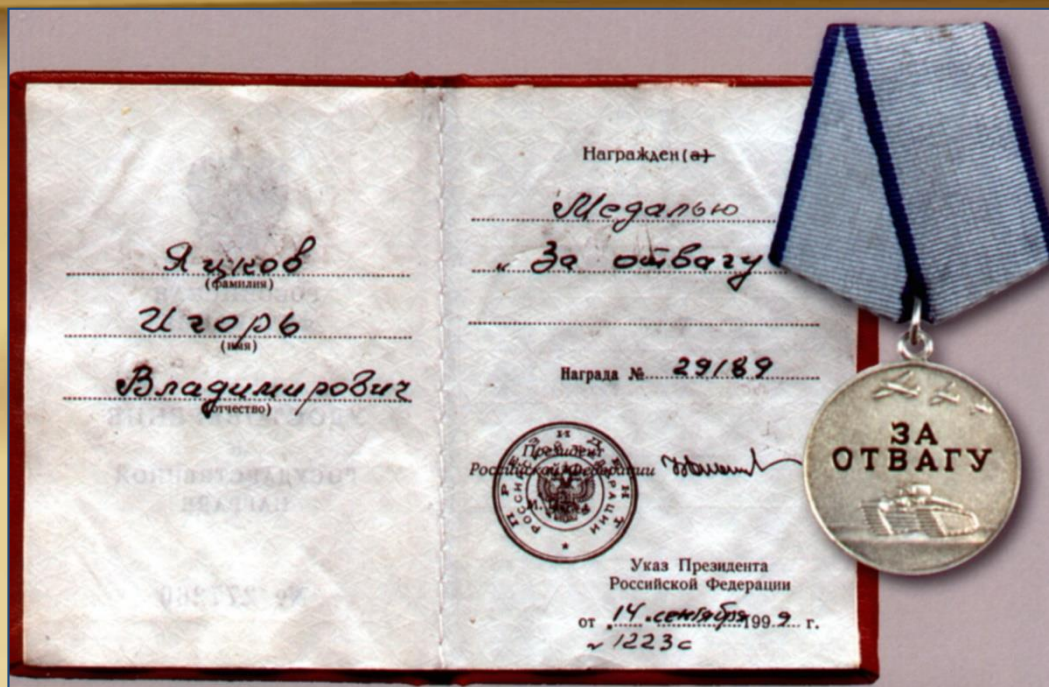 Яцков
(фамилия)
Игорь
(имя)
Владимирович
(отчество)
Награжден(а)
Медалью
„ За отвагу
Награда № 29189
ПРЕЗИДЕНТ
РОССИЙСКОЙ ФЕДЕРАЦИИ
Президент
Российской Федерации
М. П.
Указ Президента
Российской Федерации
от „14" сентября 1999 г.
№ 1223с
ЗА
ОТВАГУ